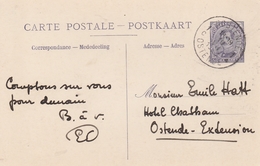 CARTE POSTALE - POSTKAART
Correspondance - Mededeeling
Adresse - Adres
Comptons sur vous
pour demain
B. à v.
EC
Monsieur Emile Hatt
Hotel Chatham
Ostende - Extension